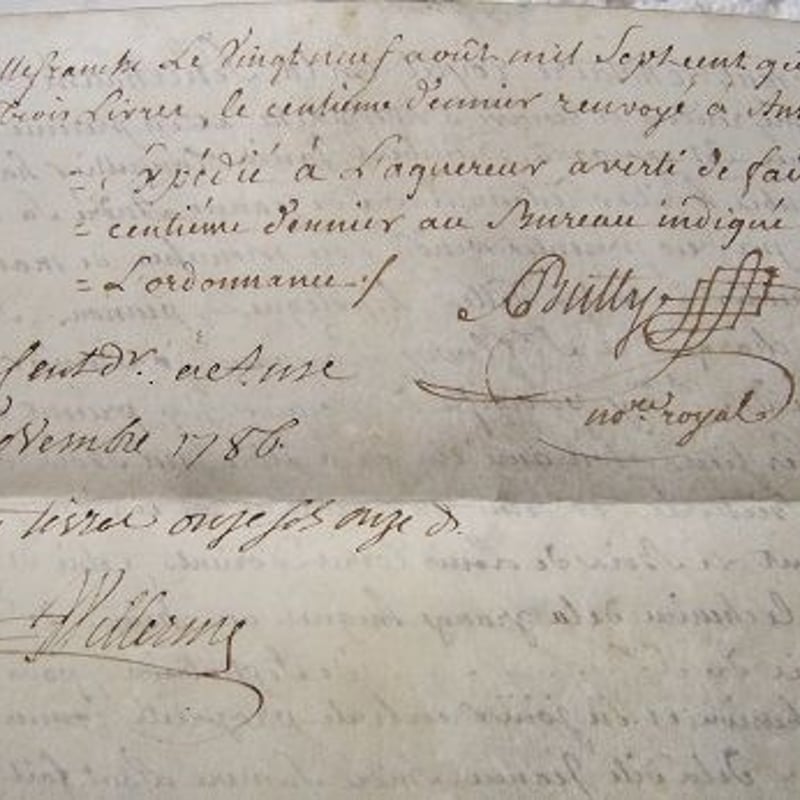 llefranche Le Vingt neuf août mil Sept cent qu
trois Livres, le centieme dennier renvoyé à Ans
= Expédié à Laquereur averti de fai
= centiéme dennier au Bureau indiqué
= Lordonnance ./
Butty
no.re royal
Cent dr. à Anse
ovembre 1786
onze sols onze d.
Willerme